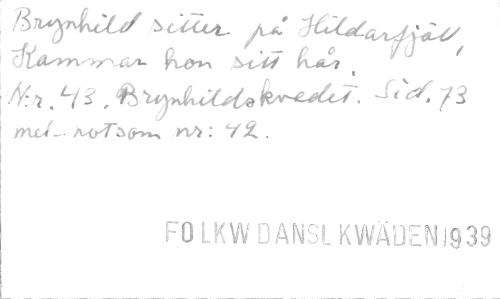 Brynhild sitter på Hildarfjäll,
Kammar hon sitt hår.
N:r. 43. Brynhildskvedet. Sid. 73
mel- not som nr: 42.
FOLKW DANSL KWÄDEN 1939